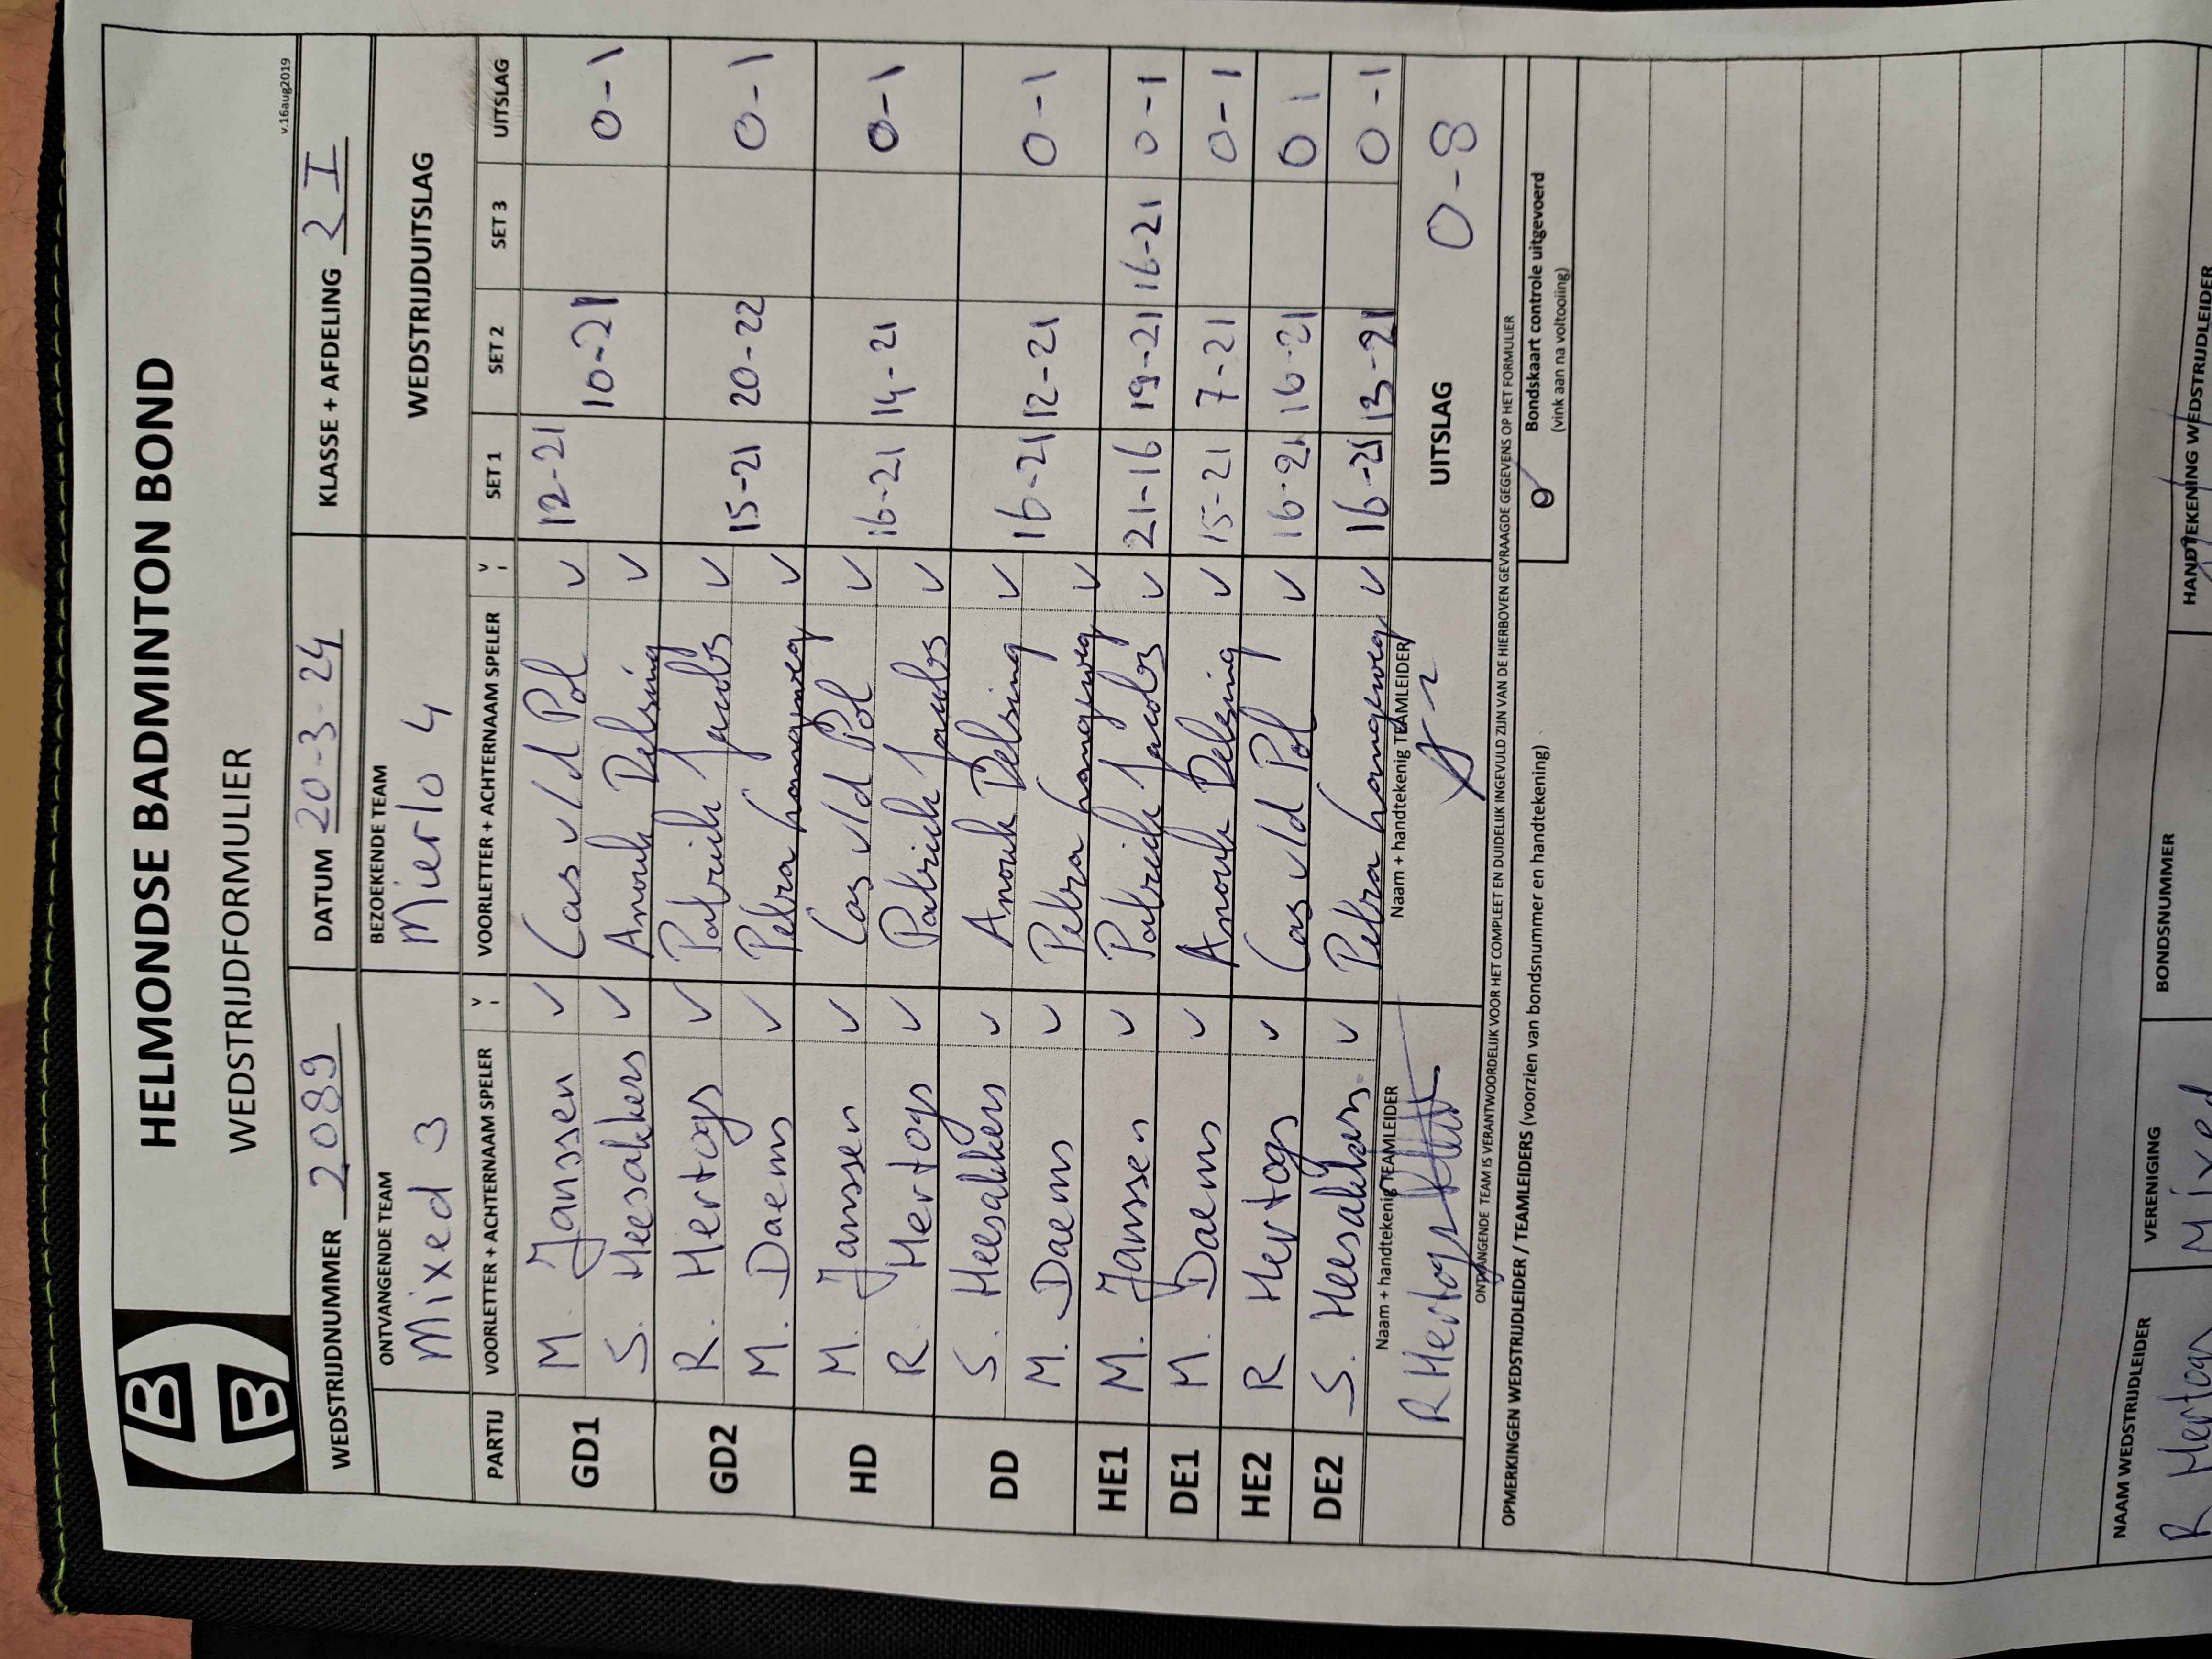 HELMONDSE BADMINTON BOND
WEDSTRIJDFORMULIER
v.16aug2019
WEDSTRIJDNUMMER 2089 DATUM 20-3-24 KLASSE + AFDELING 2 I
ONTVANGENDE TEAM BEZOEKENDE TEAM WEDSTRIJDUITSLAG
Mixed 3 Mierlo 4
PARTIJ VOORLETTER + ACHTERNAAM SPELER V VOORLETTER + ACHTERNAAM SPELER V SET 1 SET 2 SET 3 UITSLAG
GD1 M. Janssen ✓ Cas v/d Pol ✓ 12-21 10-21 0-1
S. Heesakkers ✓ Anouk Delsing ✓
GD2 R. Hertogs ✓ Patrick Jacobs ✓ 15-21 20-22 0-1
M. Daems ✓ Petra Langeweg ✓
HD M. Janssen ✓ Cas v/d Pol ✓ 16-21 14-21 0-1
R. Hertogs ✓ Patrick Jacobs ✓
DD S. Heesakkers ✓ Anouk Delsing ✓ 16-21 12-21 0-1
M. Daems ✓ Petra Langeweg ✓
HE1 M. Janssen ✓ Patrick Jacobs ✓ 21-16 19-21 16-21 0-1
DE1 M. Daems ✓ Anouk Delsing ✓ 15-21 7-21 0-1
HE2 R Hertogs ✓ Cas v/d Pol ✓ 16-21 16-21 0 1
DE2 S. Heesakkers ✓ Petra Langeweg ✓ 16-21 13-21 0-1
Naam + handtekenig TEAMLEIDER Naam + handtekenig TEAMLEIDER UITSLAG 0-8
R Hertogs
ONTVANGENDE TEAM IS VERANTWOORDELIJK VOOR HET COMPLEET EN DUIDELIJK INGEVULD ZIJN VAN DE HIERBOVEN GEVRAAGDE GEGEVENS OP HET FORMULIER
OPMERKINGEN WEDSTRIJDLEIDER / TEAMLEIDERS (voorzien van bondsnummer en handtekening)
Bondskaart controle uitgevoerd
(vink aan na voltooiing)
NAAM WEDSTRIJDLEIDER VERENIGING BONDSNUMMER HANDTEKENING WEDSTRIJDLEIDER
R Hertogs Mixed